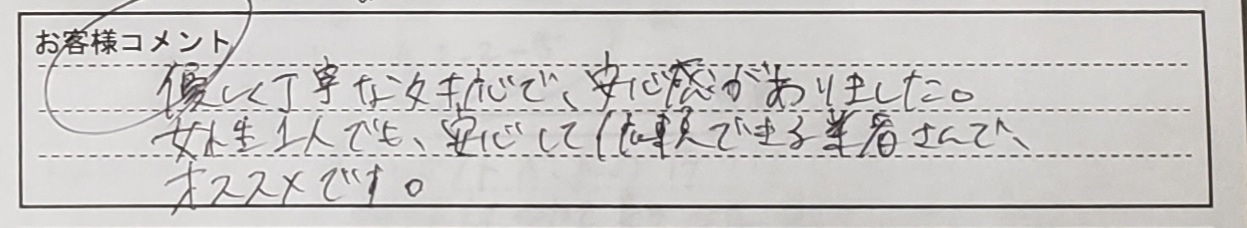 お客様コメント
優しく丁寧な対応で、安心感がありました。
女性1人でも、安心して依頼できる業者さんで、
オススメです。